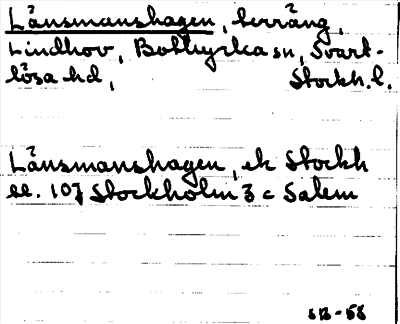 Länsmanshagen, terräng,
Lindhov, Botkyrka sn, Svart-
lösa hd, Stockh. l.
Länsmanshagen, ek Stockh
bl. 107 Stockholm 3 c Salem
-58